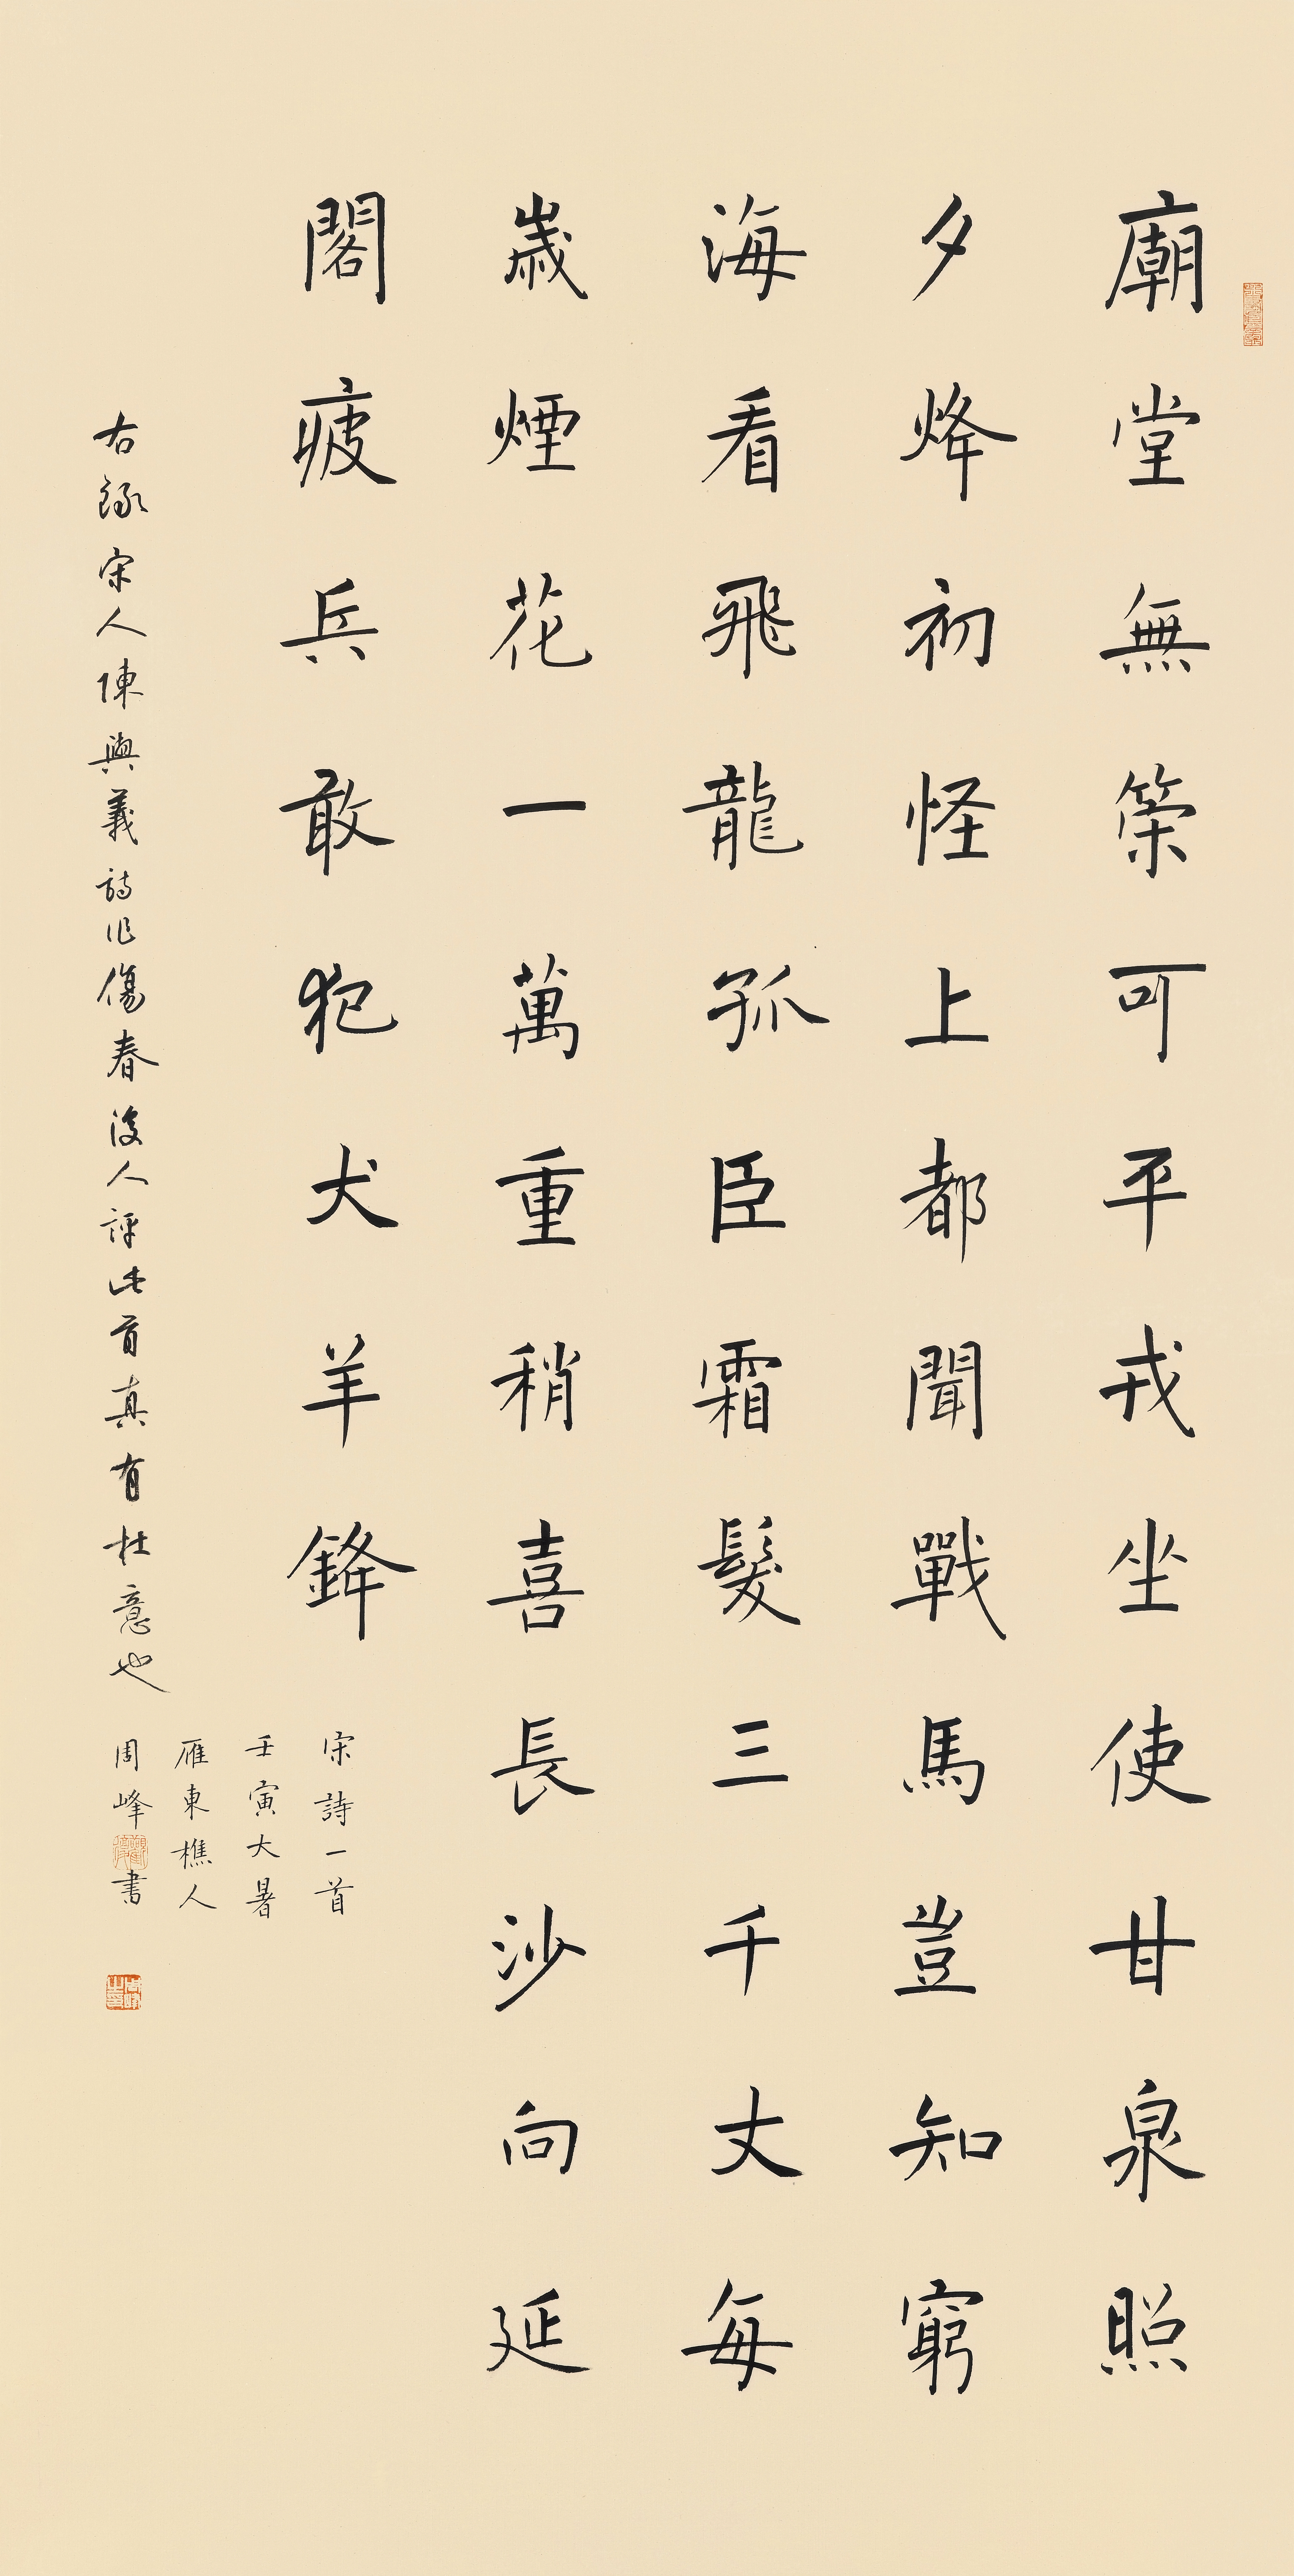 廟堂無策可平戎坐使甘泉照
夕烽初怪上都聞戰馬豈知窮
海看飛龍孤臣霜髮三千丈每
歲煙花一萬重稍喜長沙向延
閣疲兵敢犯犬羊鋒
宋詩一首
壬寅大暑
雁東樵人
周峰書
右録宋人陳與義詩作傷春後人評此首真有杜意也